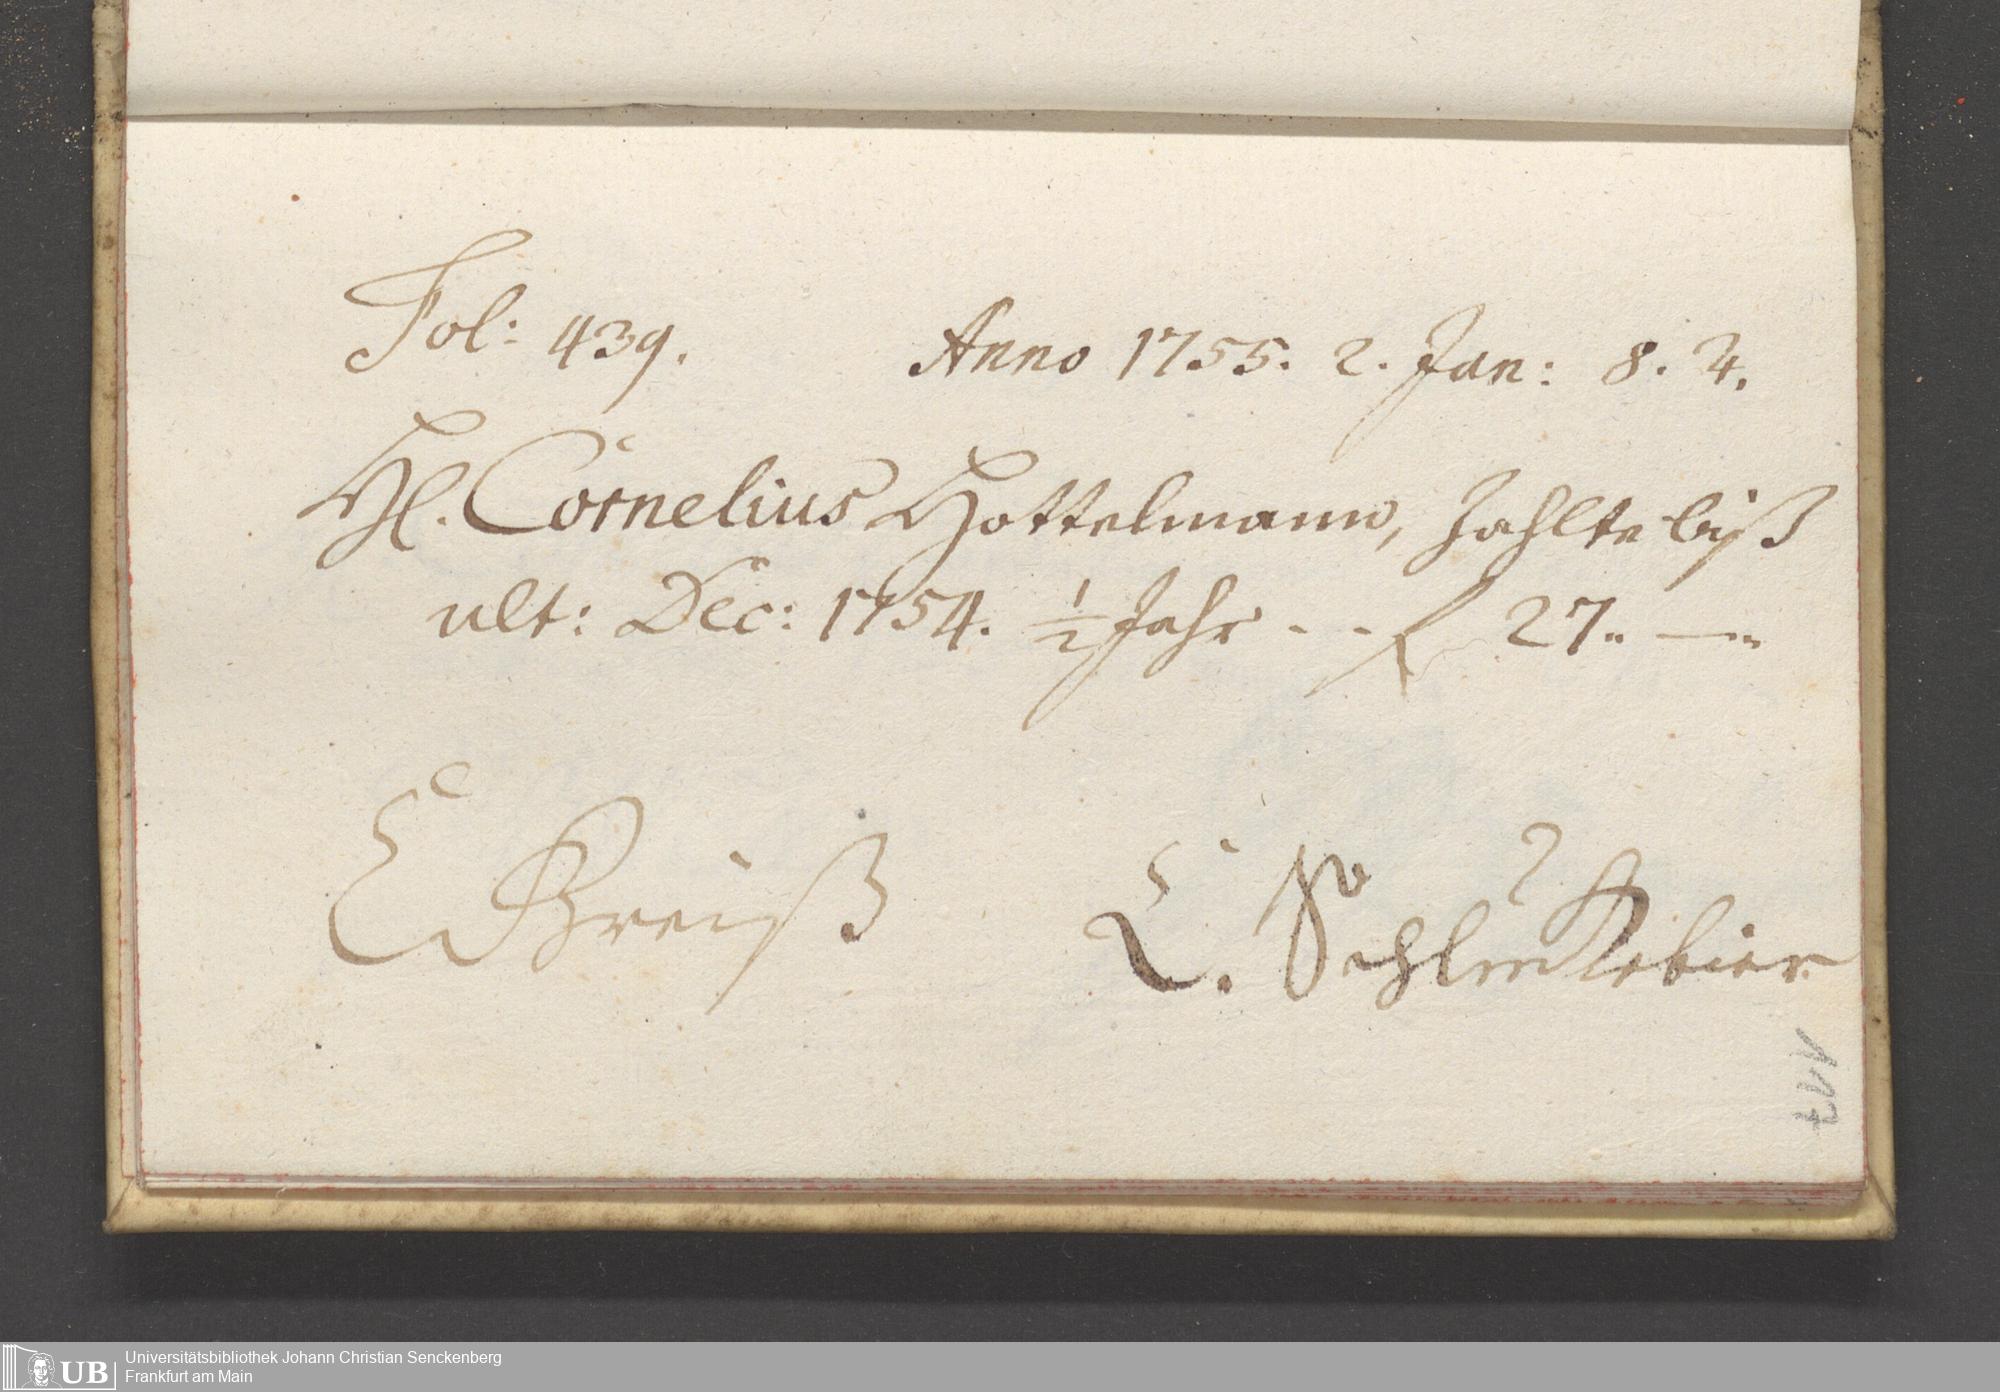 Fol: 439. Anno 1755. 2. Jan: 8. 4.
Hl. Cornelius Hottelmann, zahlte biß
ult: Dec: 1754. ½ Jahr - - f 27.. —..
C Greiß C. Schlen
177
UB Universitätsbibliothek Johann Christian Senckenberg
Frankfurt am Main